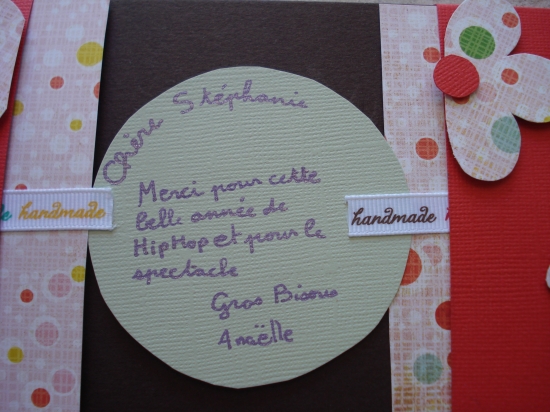 Chère Stéphanie
Merci pour cette
belle année de
HipHop et pour le
spectacle
Gros Bisous
Anaëlle
handmade
handmade